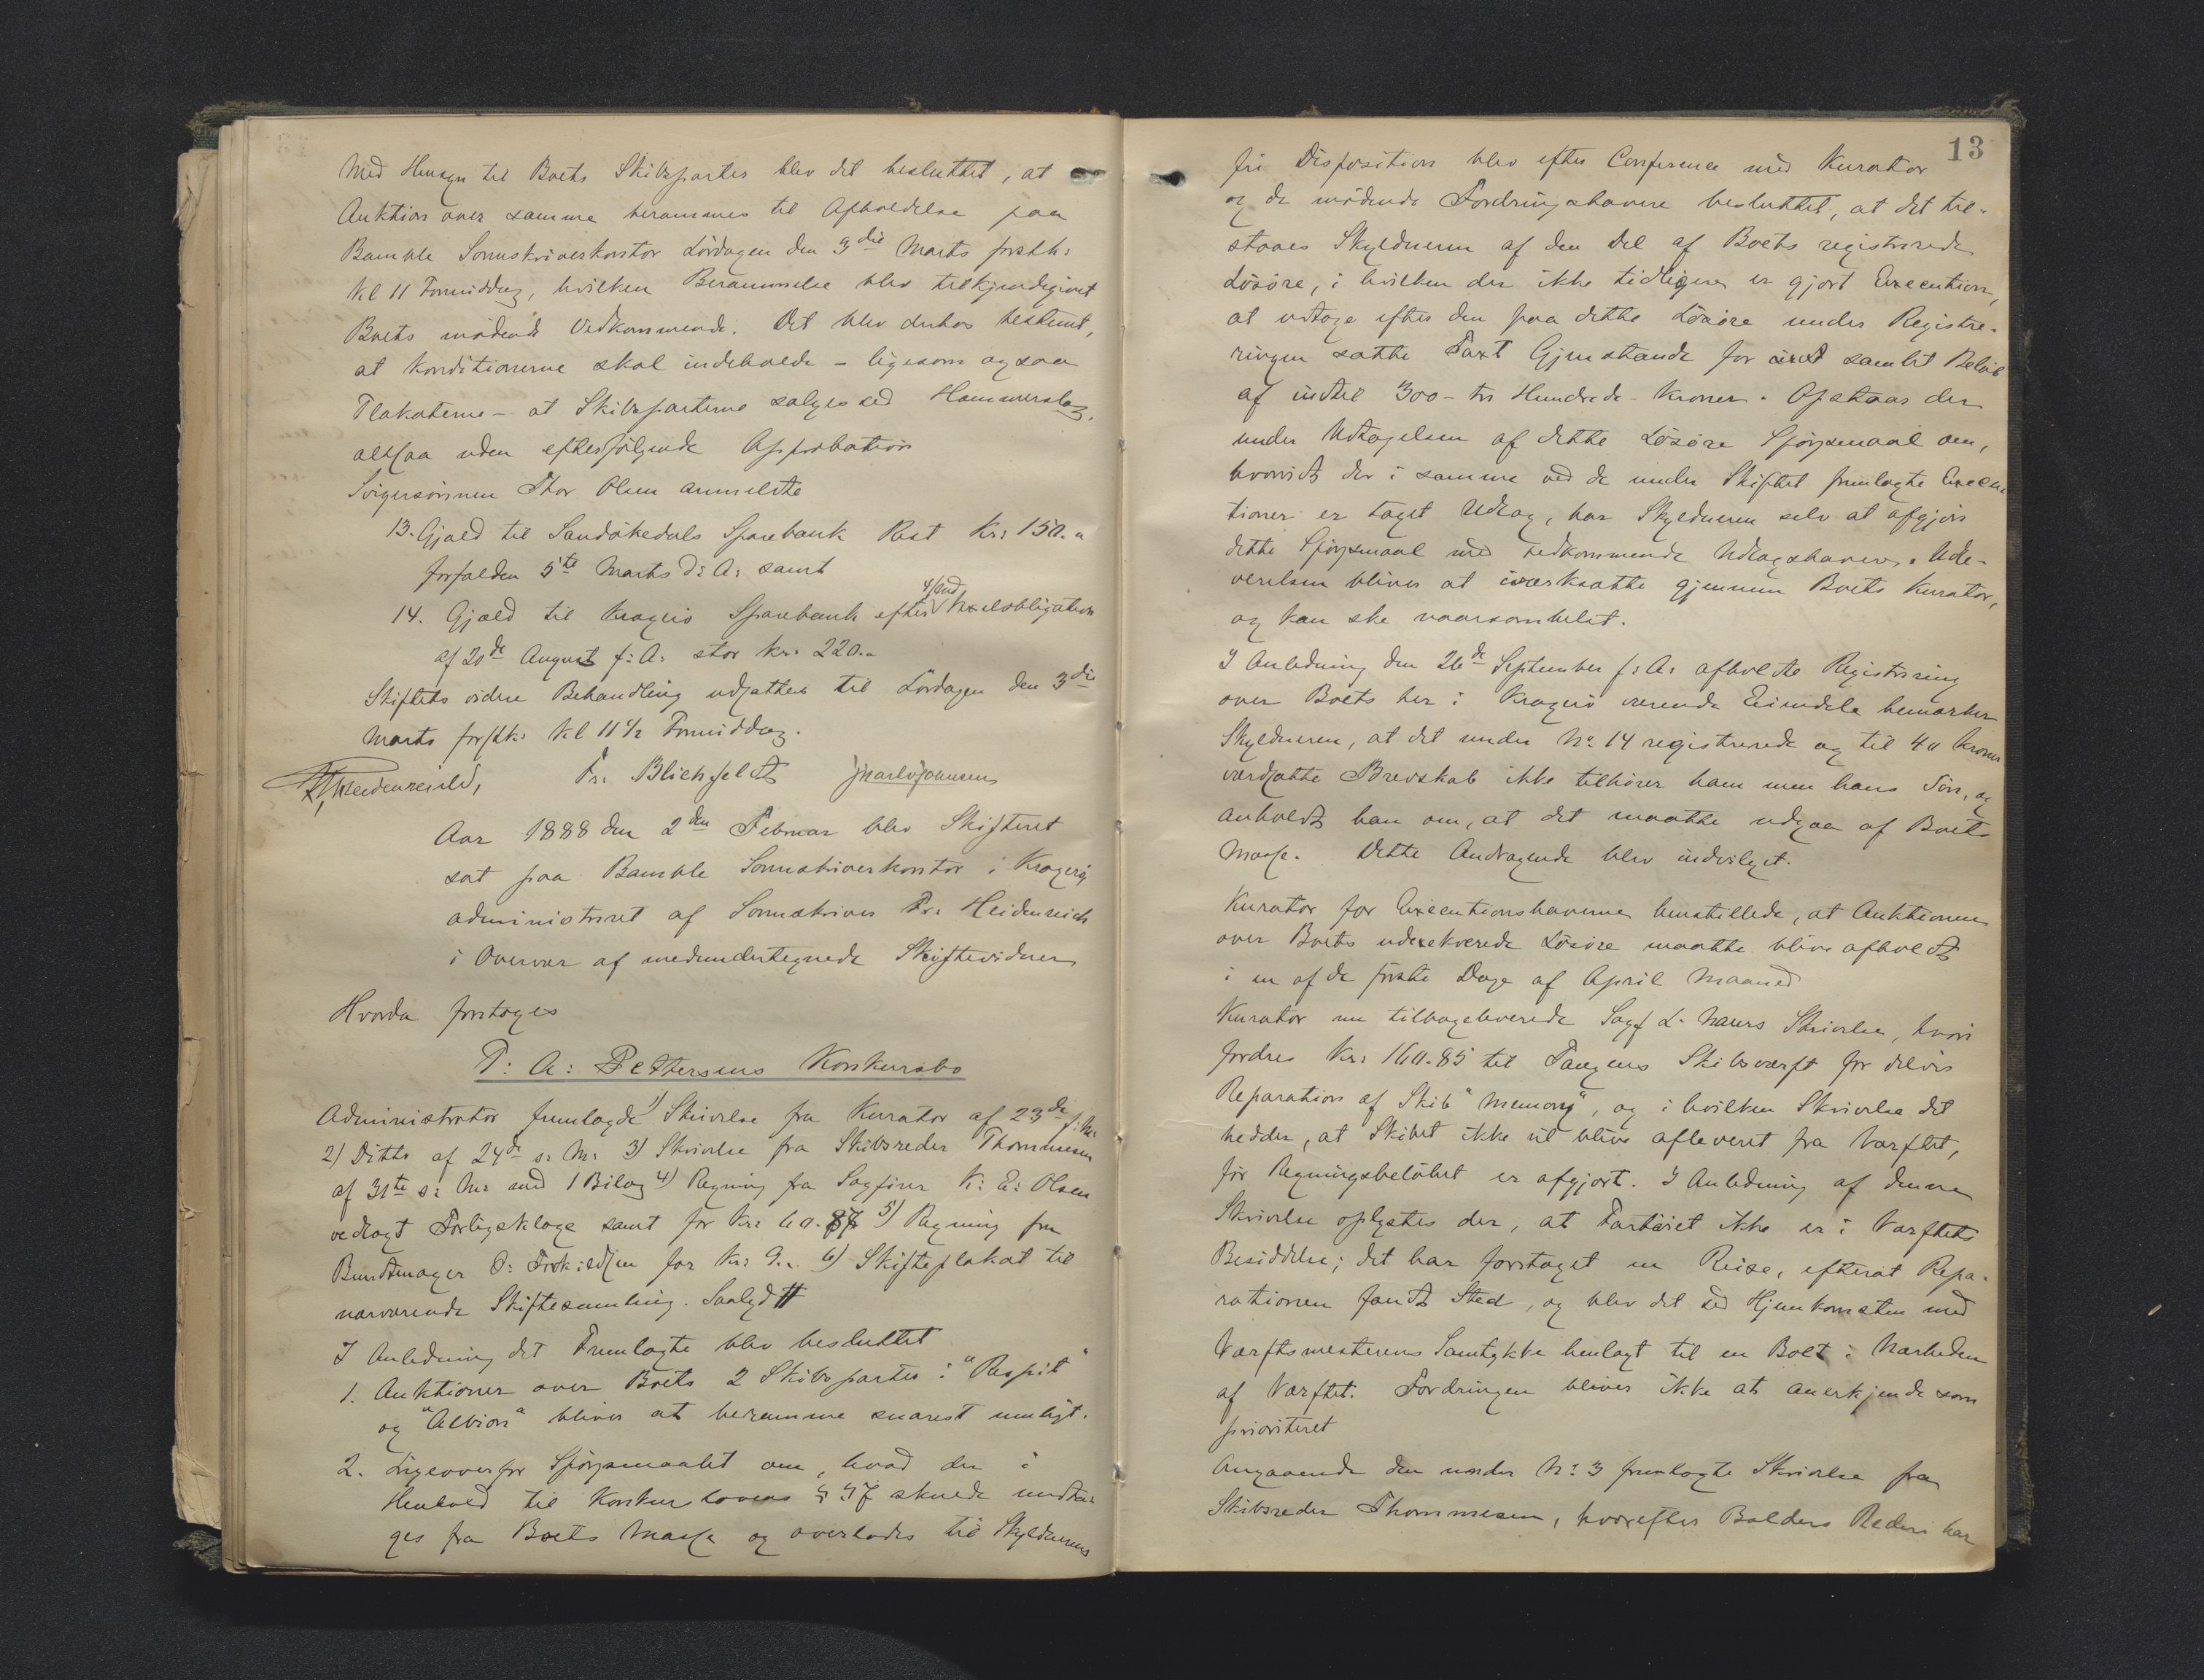 Med Hensyn til Boets Skibsparter blev det besluttet, at
Auktion over samme berammes til Afholdelse paa
Bamble Sorenskriverkontor Lördagen den 3die Marts førstk:
Kl 11 Formiddag, hvilken Berammelse blev tilkjendegivet
Boets mødende Vedkommende. Det blev derhos bestemt,
at Konditionerne skal indeholde – ligesom ogsaa
Plakaterne – at Skibsparterne salges ved Hammerslag,
altsaa uden efterfølgende Approbation
Svigersønnen Thor Olsen anmeldte
13. Gjæld til Sandøkedals Sparebank Rest Kr: 150.-
forfalden 5te Marts d: A: samt
14. Gjæld til Kragerø Sparebank efter Vexelobligation
af 20de August f: A: stor Kr. 220.-
Skiftets videre Behandling udsattes til Lördagen den 3die
Marts førstk: Kl 11 1/2 Formiddag.
Fr. Heidenreich, Fr. Blichfeldt
Aar 1888 den 2den Februar blev Skifteret
sat paa Bamble Sorenskriverkontor i Kragerø,
administreret af Sorenskriver Fr: Heidenreich
i Overvær af medundertegnede Skiftevidner
Hvorda foretoges
T: A: Pettersens Konkursbo
Administrator fremlagde 1) Skrivelse fra Kurator af 23de f: M:
2) Ditto af 24de s: M: 3) Skrivelse fra Skibsreder Thommesen
af 31te s: M: med 1 Bilag 4) Regning fra Sagfører K: E: Olsen
vedlagt Forligsklage samt for Kr: 60.87 5) Regning fra
Bundtmager O: Terkildsen for Kr: 9.- 6) Skifteplakat til
nærværende Skiftesamling. Saalydt #
I Anledning det Fremlagte blev besluttet
1. Auktioner over Boets 2 Skibsparter i "Respit"
og "Albion" bliver at beramme snarest muligt.
2. Ligeoverfor Spørgsmaalet om, hvad der i
Henhold til Konkurslovens § 47 skulde undta-
ges fra Boets Masse og overlades til Skyldnerens
13
fri Disposition blev efter Conference med Kurator
og de mødende Fordringshavere besluttet, at det til-
staaes Skyldneren af den Del af Boets registrerede
Løsøre, i hvilken der ikke tidligere er gjort Execution,
at udtage efter den paa dette Løsøre under Registre-
ringen satte Taxt Gjenstande for et samlet Beløb
af indtil 300 – tre Hundrede – Kroner. Opstaar der
under Udtagelsen af dette Løsøre Spørgsmaal om,
hvorvidt der i samme ved de under Skiftet fremlagte Execu
tioner er taget Udlæg, har Skyldneren selv at afgjøre
dette Spørgsmaal med vedkommende Udlægshavere. Udle-
verelsen bliver at iværksætte gjennem Boets Kurator,
og kan ske naarsomhelst.
I Anledning den 26de September f: A: afholdte Registrering
over Boets her i Kragerø værende Eiendele bemærker
Skyldneren, at det under No. 14 registrerede og til 40 Kroner
værdsatte Brevskab ikke tilhører ham men hans Søn, og
anholdt han om, at det maatte udgaa af Boets
Masse. Dette Andragende blev indvilget.
Kurator for Executionshaverne henstillede, at Auktionen
over Boets udexekverede Løsøre maatte blive afholdt
i en af de første Dage af April Maaned
Kurator nu tilbageleverede Sagf L. Naurs Skrivelse, hvori
fordres Kr: 160.85 til Tangens Skibsværft for delvis
Reparation af Skib "Memory", og i hvilken Skrivelse det
hedder, at Skibet ikke vil blive afleveret fra Værftet,
før Regningsbeløbet er afgjort. I Anledning af denne
Skrivelse oplystes der, at Fartøiet ikke er i Værftets
Besiddelse; det har foretaget en Reise, efterat Repa-
rationen fandt Sted, og blev det ved Hjemkomsten med
Værftsmesterens Samtykke henlagt til en Bolt i Nærheden
af Værftet. Fordringen bliver ikke at anerkjende som
prioriteret
Angaaende den under N: 3 fremlagte Skrivelse fra
Skibsreder Thommesen, hvorefter Balders Rederi har